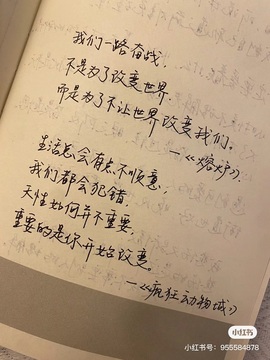 我们一路奋战,
不是为了改变世界.
而是为了不让世界改变我们。
—《熔炉》
生活总会有点不顺意,
我们都会犯错.
天性如何并不重要.
重要的是你开始改变。
—《疯狂动物城》
小红书
小红书号: 955584878